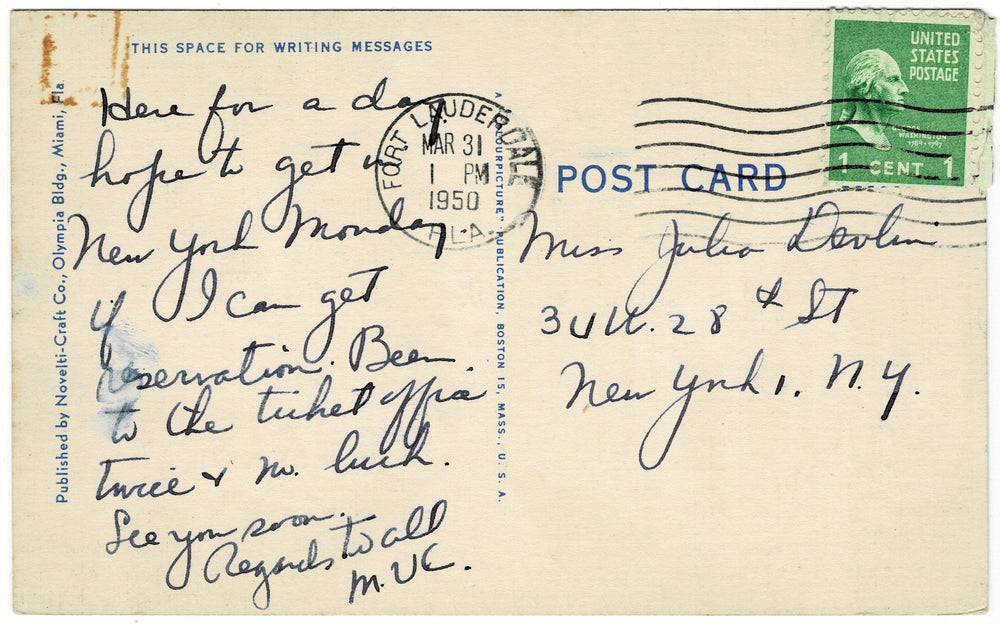 THIS SPACE FOR WRITING MESSAGES
Here for a day
hope to get
New York Monday.
if I can get
reservation. Been
to the ticket office
twice & no. luck.
See you soon.
Regards to all
M.VC.
Published by Novelti-Craft Co., Olympia Bldg., Miami, Fla.
FORT LAUDERDALE
MAR 31
1 PM
1950
FLA.
A "COLOURPICTURE" PUBLICATION, BOSTON 15, MASS., U. S. A.
POST CARD
UNITED
STATES
POSTAGE
WASHINGTON
1789-1797
1 CENT 1
Miss Julia Devlin
28th St
New York 1. N.Y.